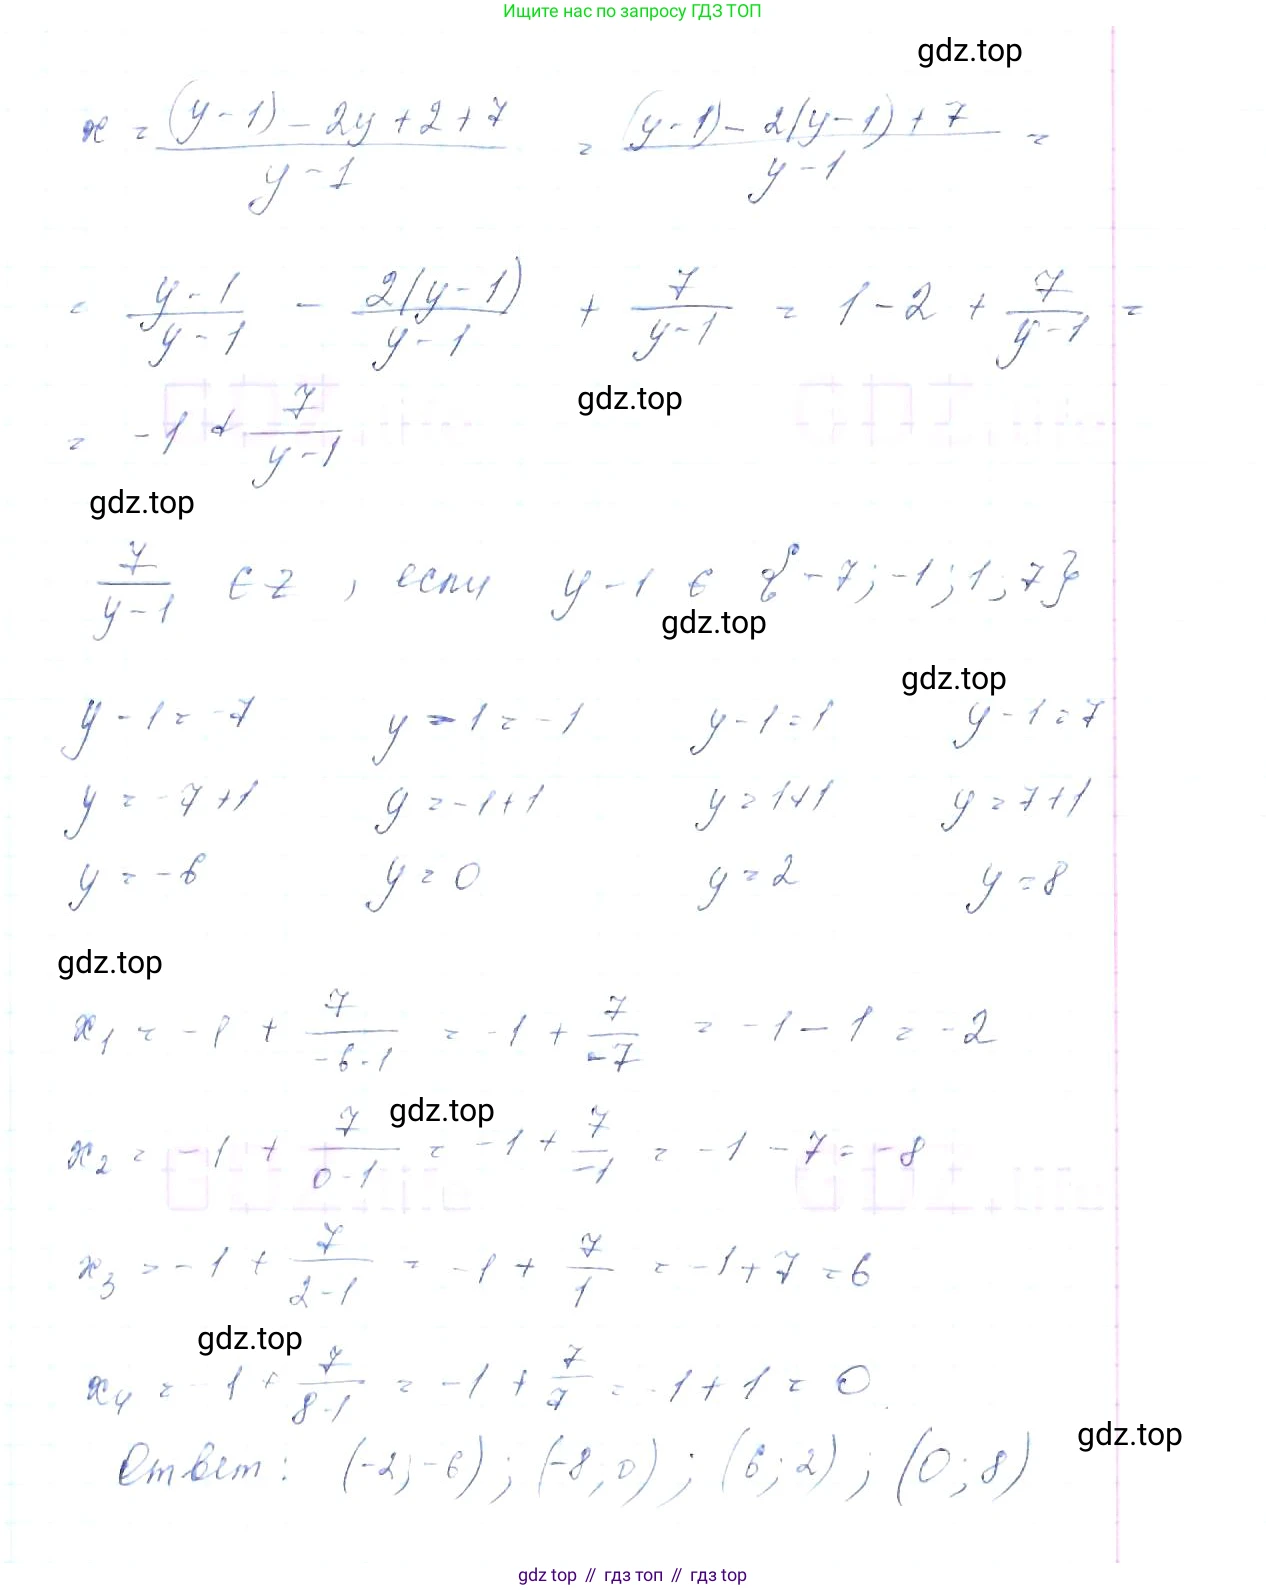 Ищите нас по запросу ГДЗ ТОП
gdz.top
x = ((y-1) - 2y + 2 + 7)/(y-1) = ((y-1) - 2(y-1) + 7)/(y-1) =
= (y-1)/(y-1) - 2(y-1)/(y-1) + 7/(y-1) = 1 - 2 + 7/(y-1) =
gdz.top
= -1 + 7/(y-1)
gdz.top
7/(y-1) ∈ Z, если y-1 ∈ {-7; -1; 1; 7}
gdz.top
gdz.top
y-1 = -7 y-1 = -1 y-1 = 1 y-1 = 7
y = -7+1 y = -1+1 y = 1+1 y = 7+1
y = -6 y = 0 y = 2 y = 8
gdz.top
x₁ = -1 + 7/(-6-1) = -1 + 7/(-7) = -1 - 1 = -2
gdz.top
x₂ = -1 + 7/(0-1) = -1 + 7/(-1) = -1 - 7 = -8
x₃ = -1 + 7/(2-1) = -1 + 7/1 = -1 + 7 = 6
gdz.top
x₄ = -1 + 7/(8-1) = -1 + 7/7 = -1 + 1 = 0
gdz.top
Ответ: (-2; -6); (-8; 0); (6; 2); (0; 8)
gdz.top // гдз топ // гдз top